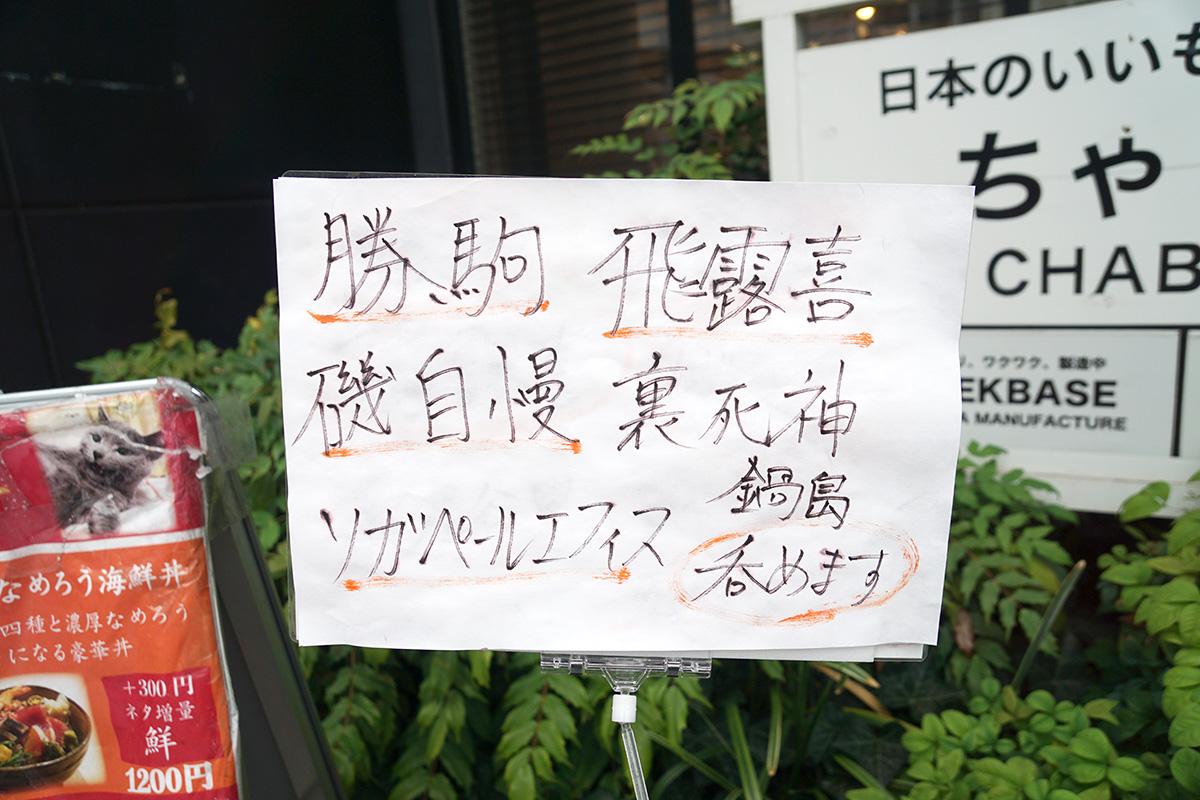 勝駒 飛露喜
磯自慢 裏死神
鍋島
ソガペールエフィス
呑めます
日本のいいも
ちゃ
CHAB
、ワクワク、製造中
EKBASE
A MANUFACTURE
なめろう海鮮丼
四種と濃厚なめろう
になる豪華丼
+300円
ネタ増量
鮮
1200円